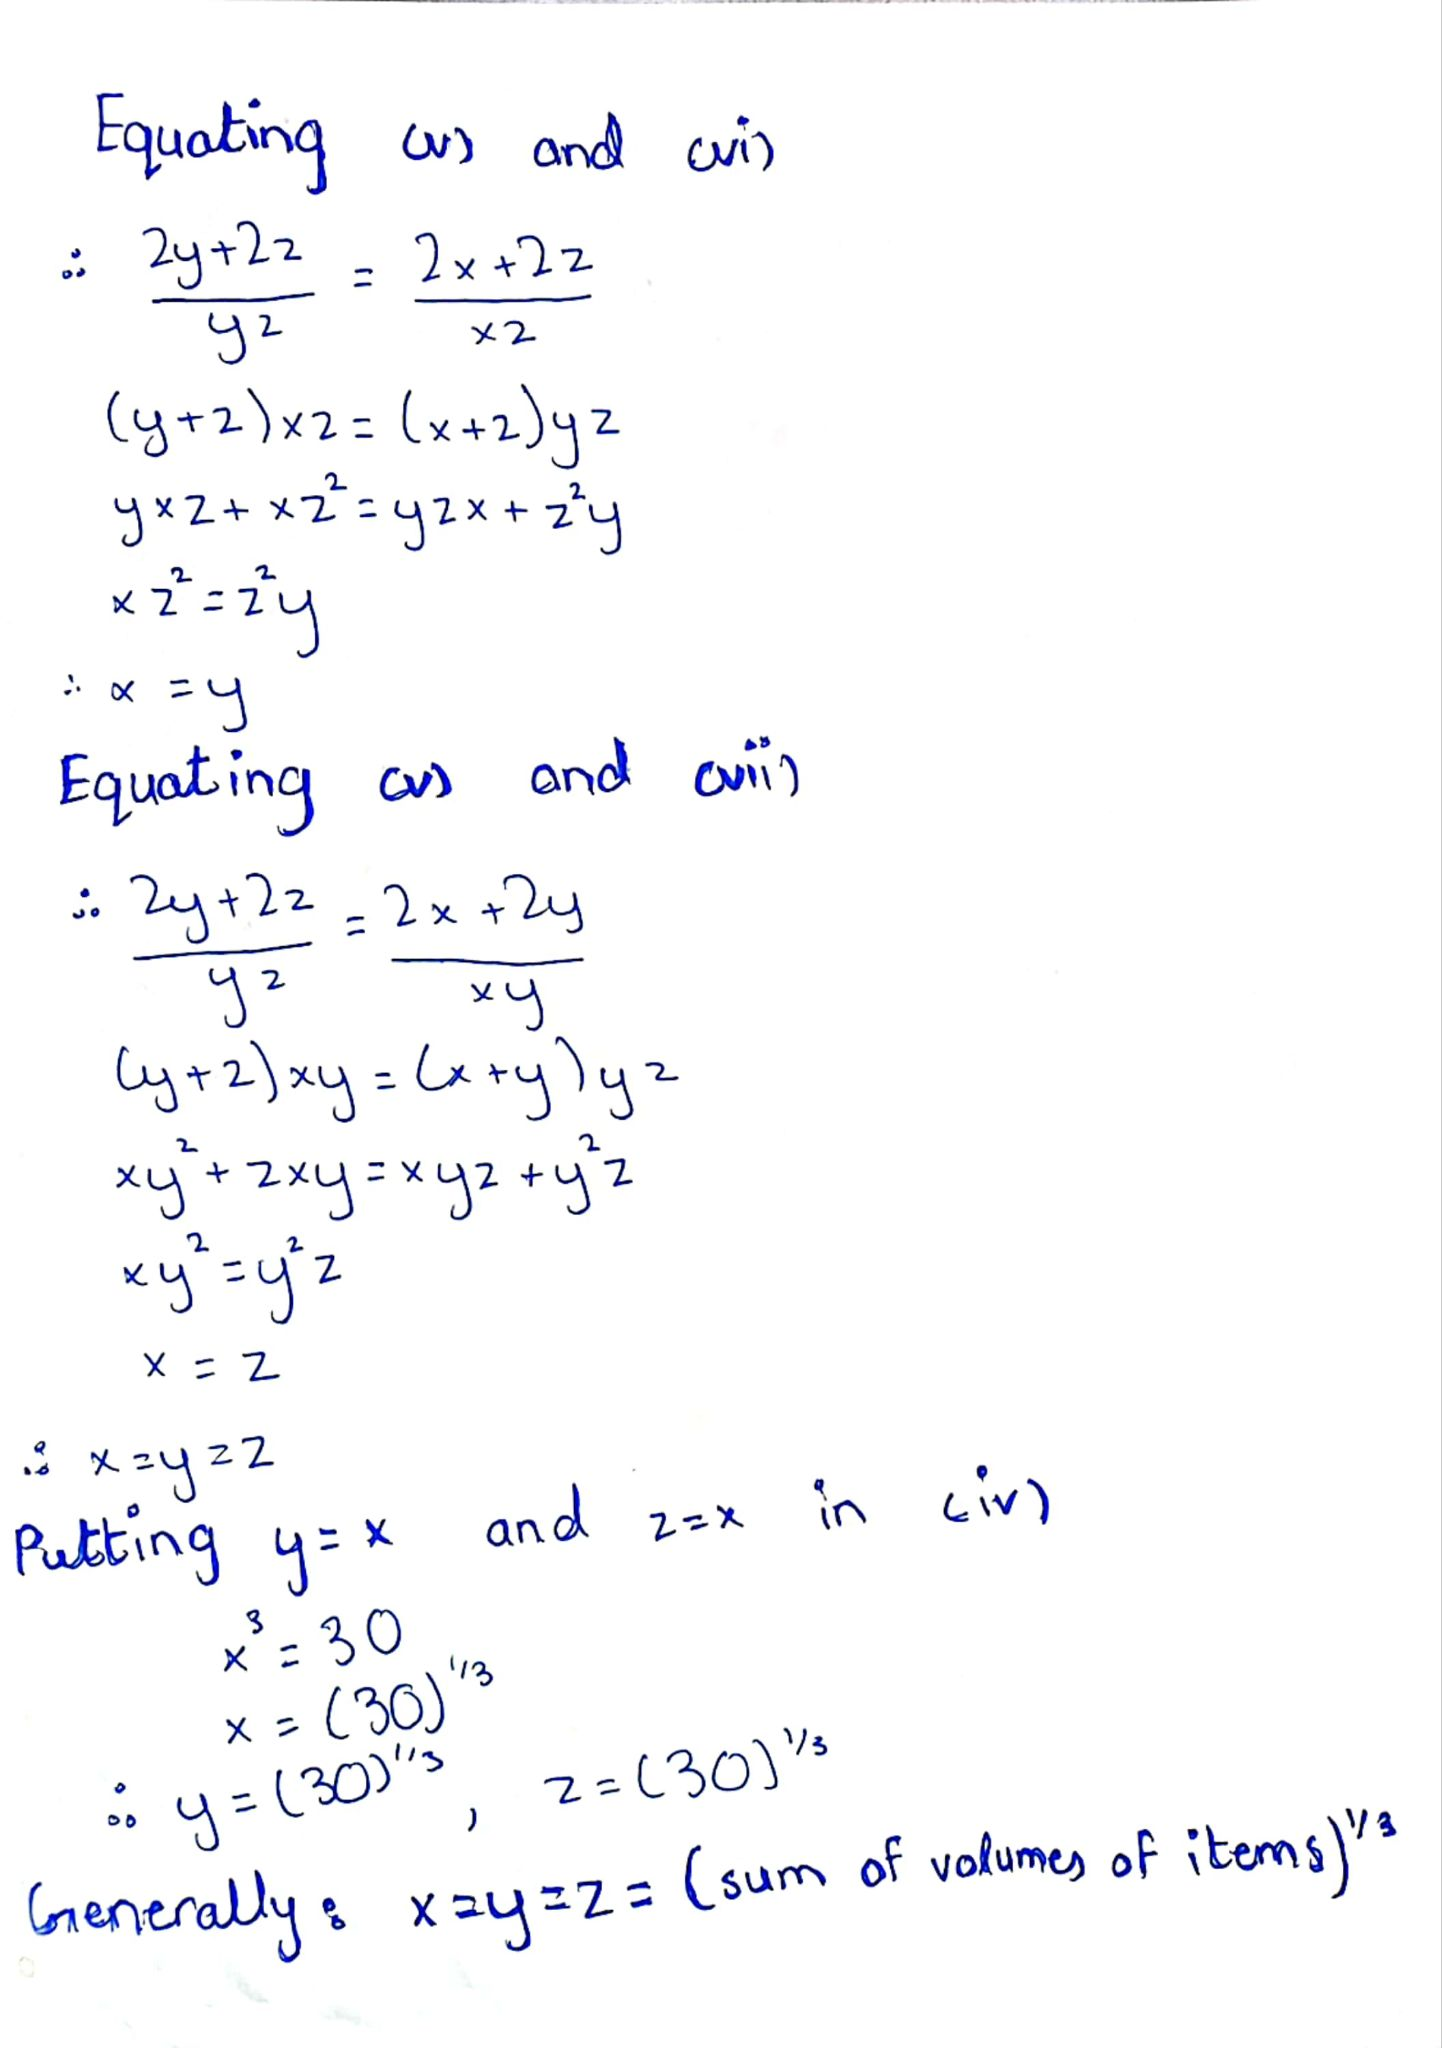 Equating (v) and (vi)
∴ 2y+2z = 2x+2z
yz xz
(y+z)xz = (x+z)yz
yxz + xz² = yzx + z²y
xz² = z²y
∴ x = y
Equating (v) and (vii)
∴ 2y+2z = 2x+2y
yz xy
(y+z)xy = (x+y)yz
xy² + zxy = xyz + y²z
xy² = y²z
x = z
∴ x=y=z
Putting y=x and z=x in (iv)
x³ = 30
x = (30)^1/3
∴ y = (30)^1/3 , z = (30)^1/3
Generally: x=y=z = (sum of volumes of items)^1/3